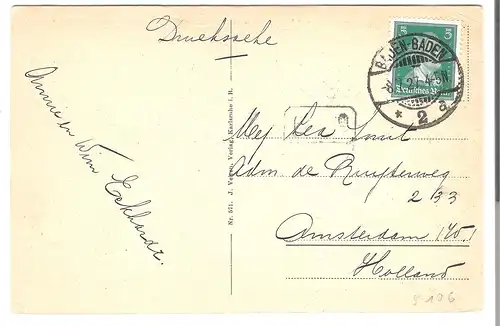 Drucksache
Annie en Wim Eckhardt.
Nr. 571. J. Verlag, Karlsruhe i. B.
BADEN-BADEN
27.4-5N
* 2 a
5
Deutsches Reich
Mej Lea Smit
Adm de Ruyterweg
233
Amsterdam (W.)
Holland
9 106